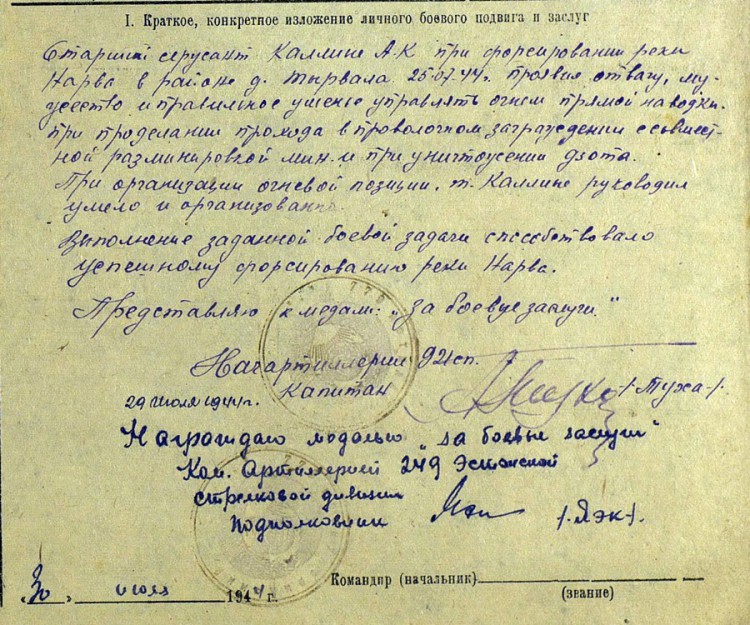 I. Краткое, конкретное изложение личного боевого подвига и заслуг
Старший сержант Каллине А.К при форсировании реки
Нарва в районе д. Тырвала 25.07.44г. проявил отвагу, му-
жество и правильное уменье управлять огнем прямой наводки.
при проделании прохода в проволочном заграждении с
ной разминировкой мин. и при уничтожении дзота.
При организации огневой позиции. т. Каллине руководил
умело и организованно.
Выполнение заданной боевой задачи способствовало
успешному форсированию реки Нарва.
Представляю к медали: „За боевые заслуги."
Начартиллерии 921сп.
Капитан /-Муха-/.
29 июля 1944г.
Награждаю медалью „За боевые заслуги"
Ком. Артиллерией 249 Эстонской
стрелковой дивизии
Подполковник /-Яэк-/.
Командир (начальник)
"30" июля 1944 г.
(звание)